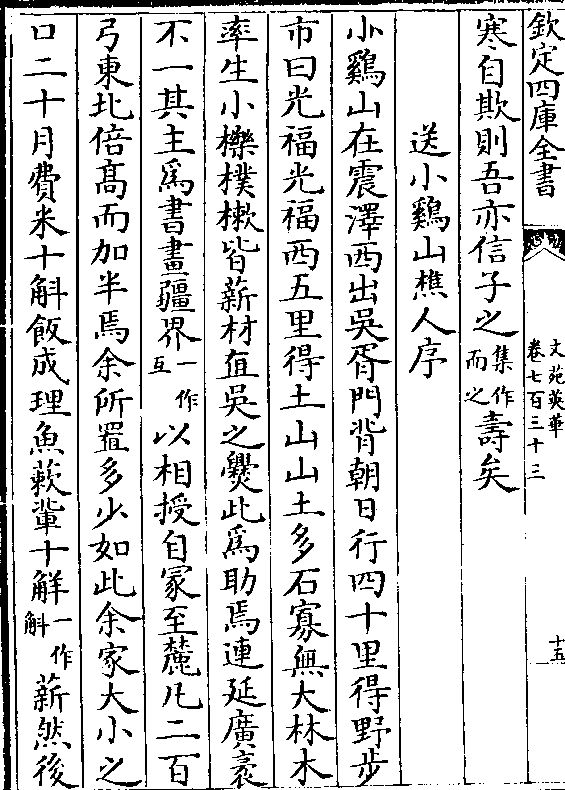 欽定四庫全書
文苑英華
卷七百三十三
十五
寒自欺則吾亦信子之集作而之壽矣
送小鷄山樵人序
小鷄山在震澤西出吳胥門背朝日行四十里得野步
市曰光福光福西五里得土山山土多石寡無大林木
率生小櫟樸樕皆薪材直吳之爨此爲助焉連延廣袤
不一其主爲書畫疆界一作互以相授自冡至麓凡二百
弓東北倍髙而加半焉余所置多少如此余家大小之
口二十月費米十斛飯成理魚蔌輩十觧一作斛薪然後